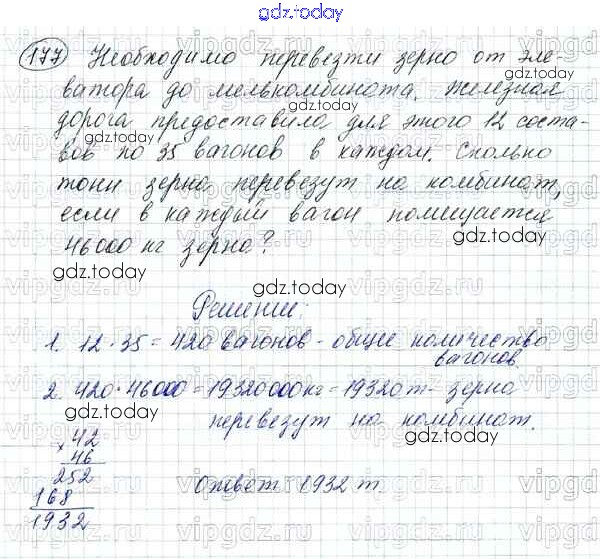 gdz.today
177 Необходимо перевезти зерно от эле-
ватора до мелькомбината. Железная
gdz.today
дорога предоставила для этого 12 соста-
вов по 35 вагонов в каждом. Сколько
тонн зерна перевезут на комбинат,
если в каждый вагон помещается
46000 кг зерна?
gdz.today
Решение:
1. 12·35=420 вагонов - общее количество
вагонов.
2. 420·46000=19320000кг=19320т- зерна
перевезут на комбинат.
× 42
46
252
168
1932
Ответ 1932 т.
gdz.today